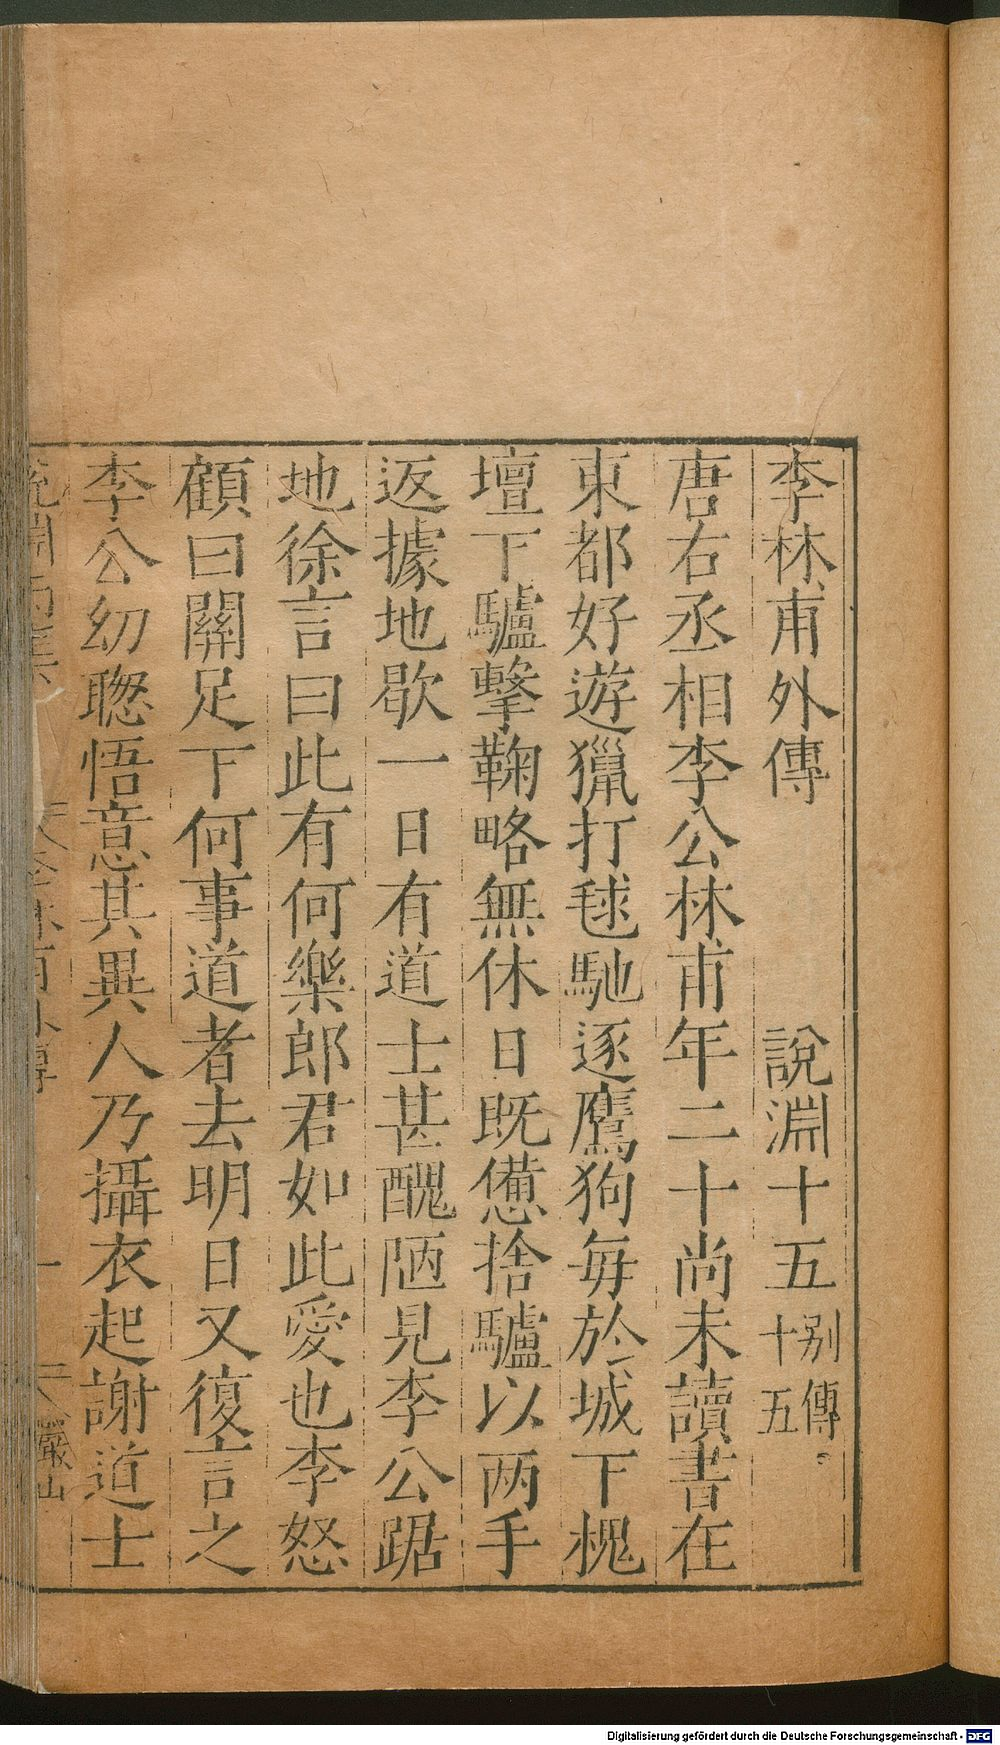 李林甫外傳 說淵十五 别傳十五
唐右丞相李公林甫年二十尚未讀書在
東都好遊獵打毬馳逐鷹狗每於城下槐
壇下驢擊鞠略無休日既憊捨驢以两手
返據地歇一日有道士甚醜陋見李公踞
地徐言曰此有何樂郎君如此愛也李怒
顧曰關足下何事道者去明日又復言之
李公幼聰悟意其異人乃攝衣起謝道士
Digitalisierung gefördert durch die Deutsche Forschungsgemeinschaft - DFG